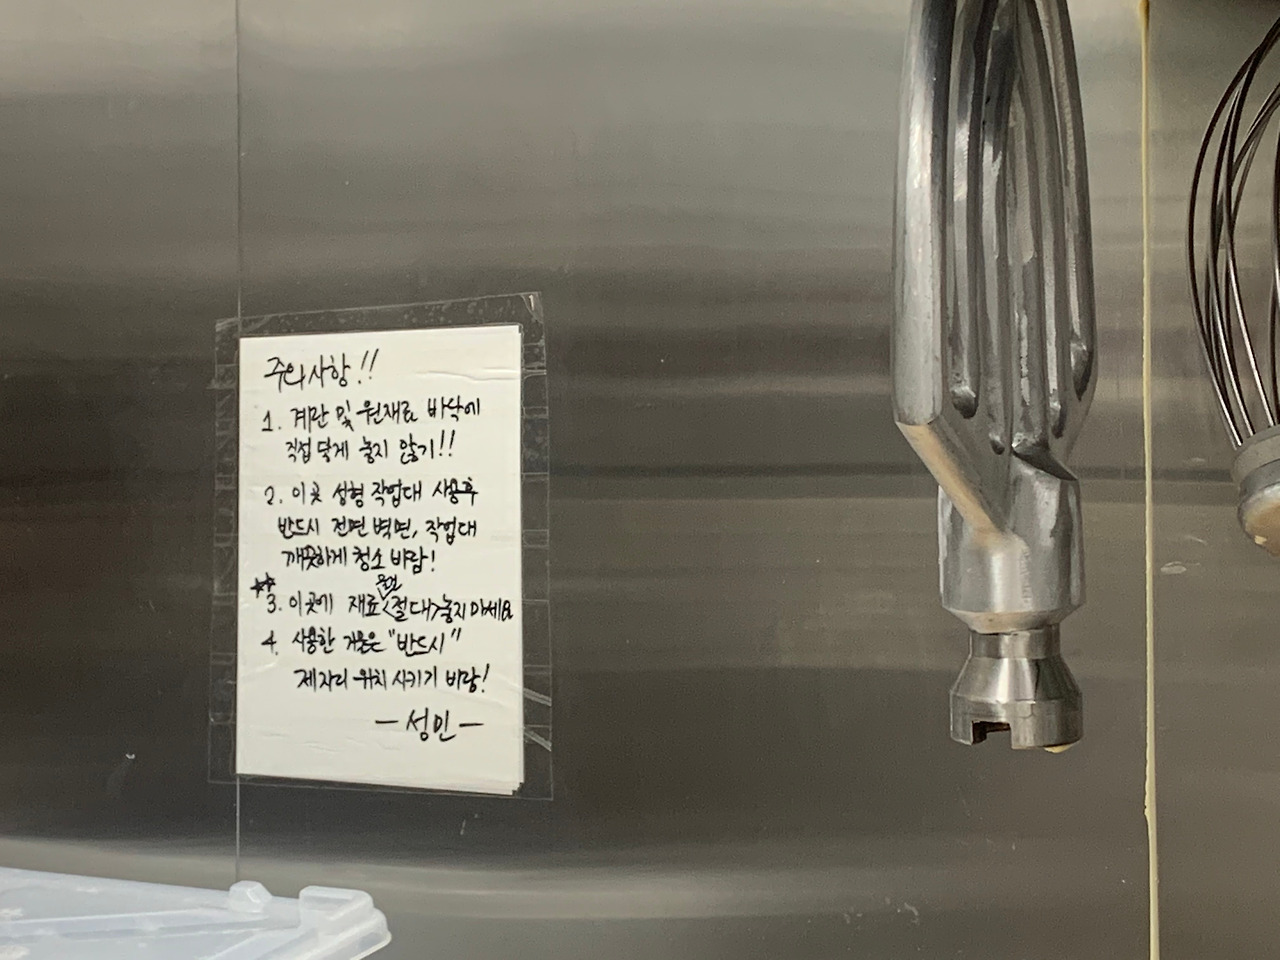 주의사항!!
1. 계란 및 원재료 바닥에
직접 닿게 놓지 않기!!
2. 이곳 성형 작업대 사용후
반드시 전면 벽면, 작업대
깨끗하게 청소 바람!
3. 이곳에 재료 <절대> 놓지 마세요
4. 사용한 거품은 "반드시"
제자리 위치 시키기 바람!
- 성민 -